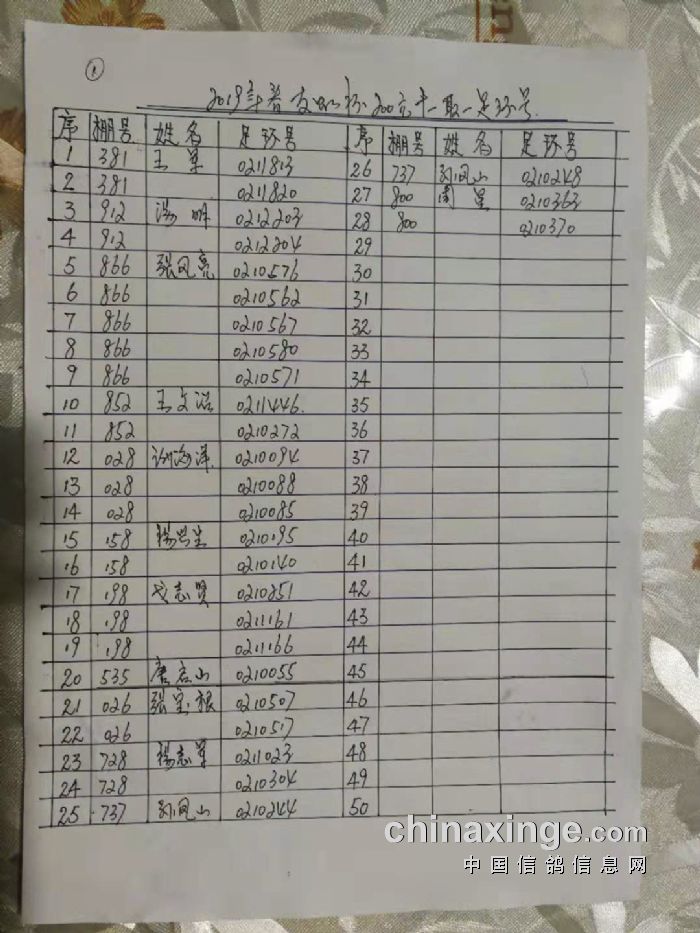 1
2019年 200元 一取一足环号
序 棚号 姓名 足环号 序 棚号 姓名 足环号
1 381 王军 0211813 26 737 孙凤山 0210248
2 381 0211820 27 800 周星 0210363
3 912 汤明 0212203 28 800 0210370
4 912 0212204 29
5 866 张凤亮 0210576 30
6 866 0210562 31
7 866 0210567 32
8 866 0210580 33
9 866 0210571 34
10 852 王文浩 0211446 35
11 852 0210272 36
12 028 海洋 0210094 37
13 028 0210088 38
14 028 0210085 39
15 158 杨兴生 0210195 40
16 158 0210140 41
17 198 戈志贤 0210851 42
18 198 0211161 43
19 198 0211166 44
20 535 唐启山 0210055 45
21 026 张宝根 0210507 46
22 026 0210517 47
23 728 杨志军 0211023 48
24 728 0210304 49
25 737 孙凤山 0210244 50
chinaxinge.com
中国信鸽信息网